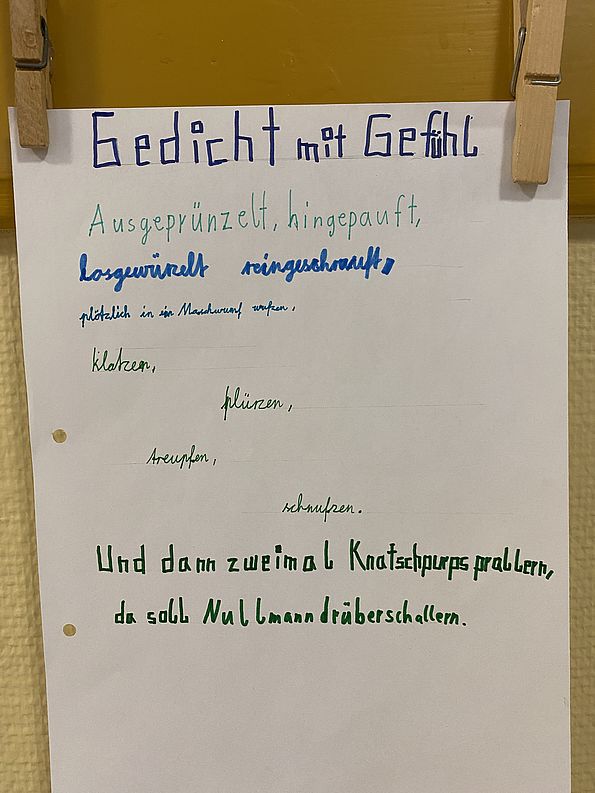 Gedicht mit Gefühl
Ausgeprünzelt, hingepauft,
losgewürzelt reingeschrauft,
plötzlich in ein Maschwumf wufzen,
klatzen,
plürzen,
treupfen,
schnufzen.
Und dann zweimal Knatschpurps prallern,
da soll Nullmann drüberschallern.